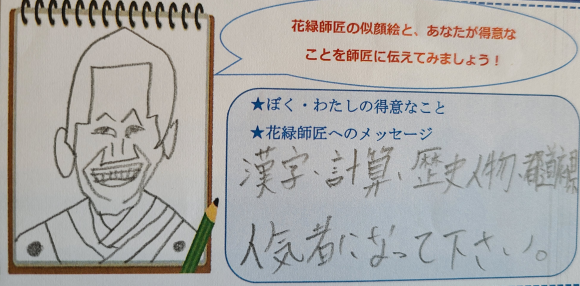 花緑師匠の似顔絵と、あなたが得意な
ことを師匠に伝えてみましょう！
★ぼく・わたしの得意なこと
★花緑師匠へのメッセージ
漢字、計算、歴史人物、都道府県
人気者になって下さい。